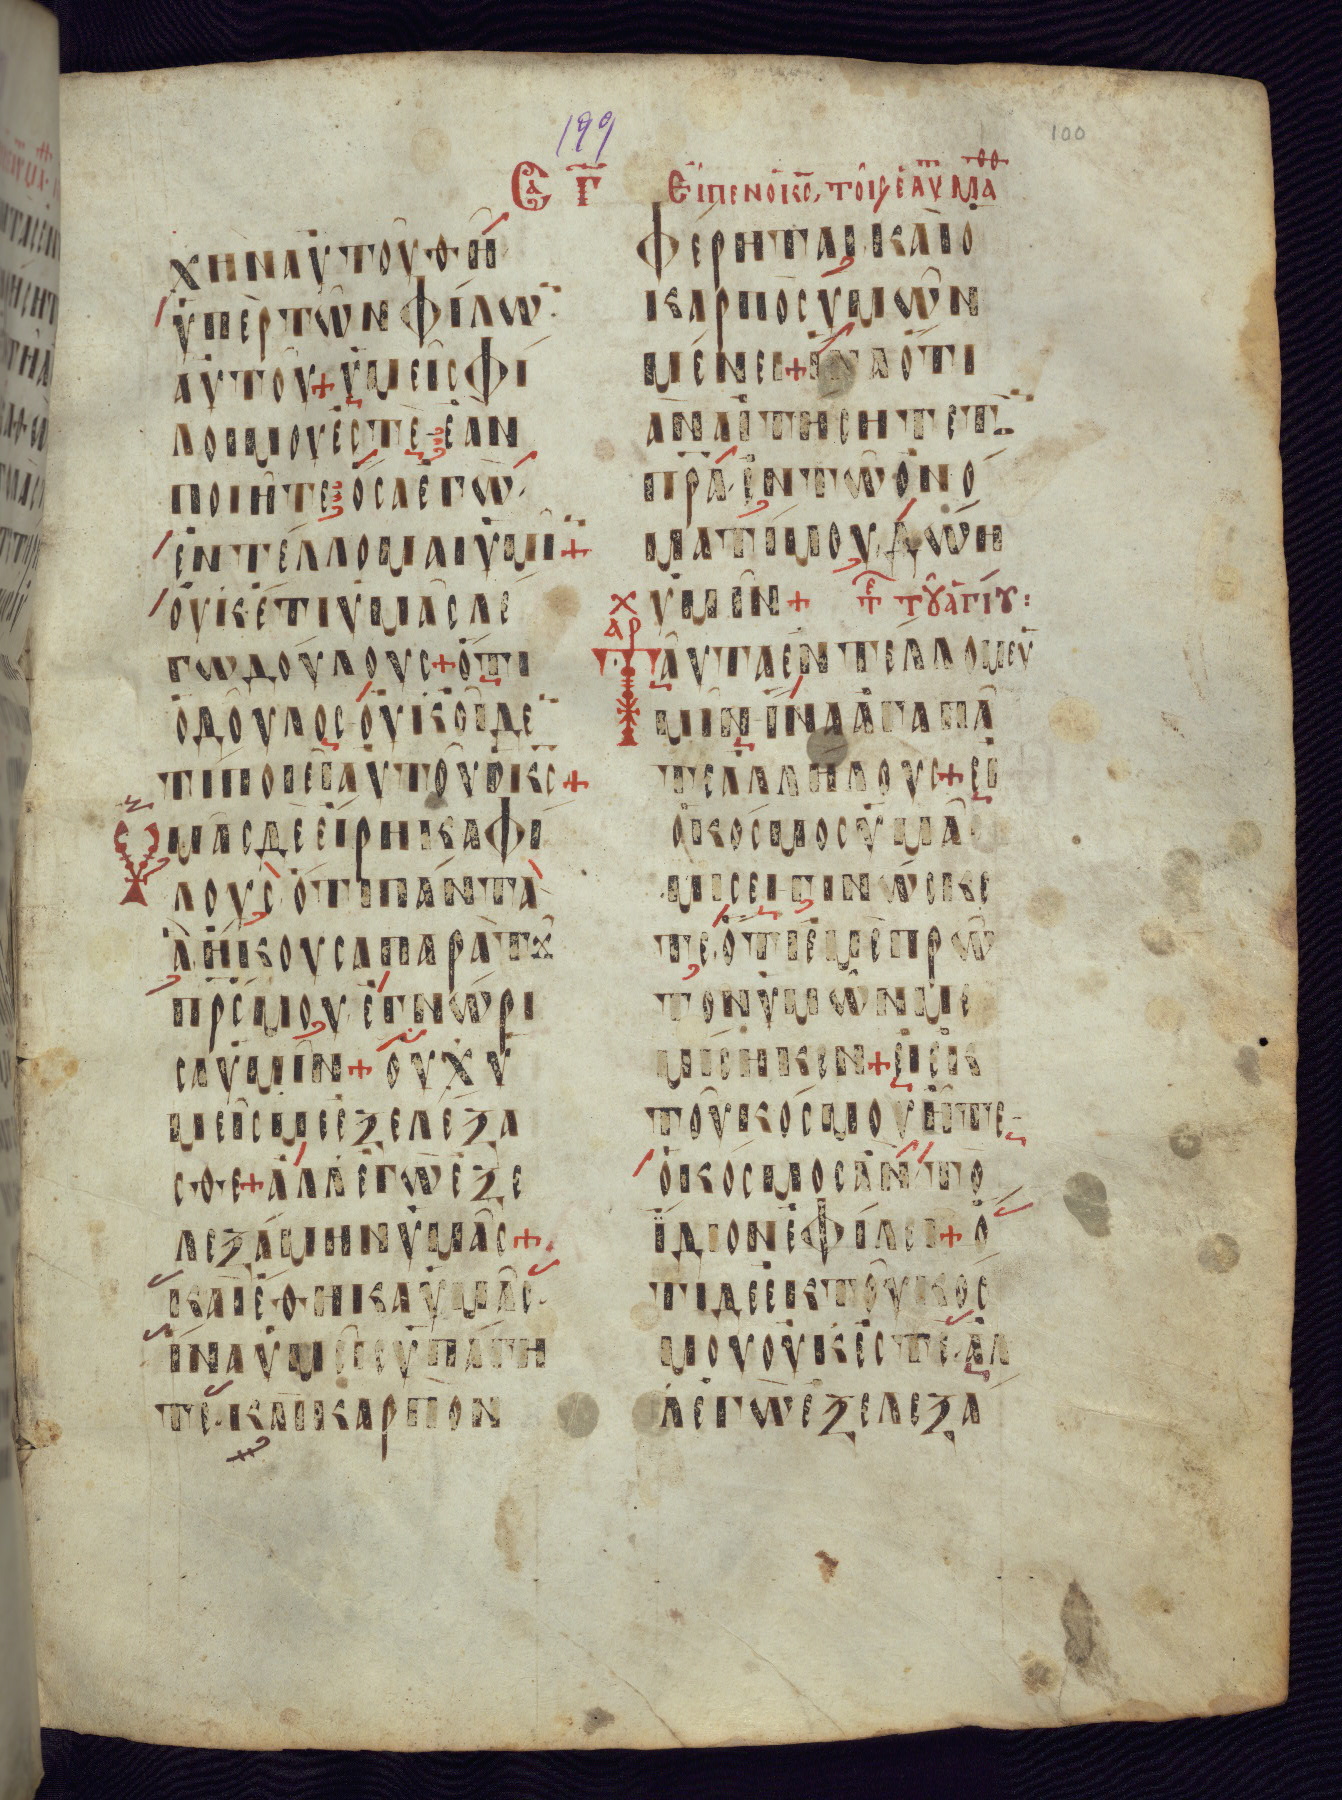 199
100
Σα Γ̄ Εἶπεν ὁ κς τοῖς ἑαυ μαθ
χὴν αὐτοῦ θῇ
ὑπὲρ τῶν φίλω̄
αὐτοῦ + ὑμεῖς φί
λοι μού ἐστε ἐὰν
ποιῆτε ὅσα ἐγὼ
ἐντέλλομαι ὑμῖ +
οὐκέτι ὑμᾶς λέ
γω δούλους + ὅτι
ὁ δοῦλος οὐκ οἶδε
τί ποιεῖ αὐτοῦ ὁ κς +
Ὑμᾶς δὲ εἴρηκα φί
λους ὅτι πάντα
ἃ ἤκουσα παρὰ τȣ
πρς μου ἐγνώρι
σα ὑμῖν + οὐχ ὑ
μεῖς με ἐξελέξα
σθε + ἀλλ ἐγὼ ἐξε
λεξάμην ὑμᾶς +
καὶ ἔθηκα ὑμᾶς
ἵνα ὑμεῖς ὑπάγη
τε καὶ καρπὸν
φέρηται καὶ ὁ
καρπὸς ὑμῶν
μένει + ἵνα ὅτι
ἂν αἰτήσητε τὸ̄
πρα ἐν τῷ ὀνό
ματί μου δώη
ὑμῖν + τε τοῦ ἁγίου :
χ
αρ
Ταῦτα ἐντέλλομε ὑ
μῖν ἵνα ἀγαπᾶ
τε ἀλλήλους + εἰ
ὁ κόσμος ὑμᾶ
μισεῖ γινώσκε
τε ὅτι ἐμὲ πρῶ
τον ὑμῶν με
μίσηκεν + εἰ ἐκ
τοῦ κόσμου ἦτε
ὁ κόσμος ἂν τὸ
ἴδιον ἐφίλει + ὅ
τι δὲ ἐκ τοῦ κόσ
μου οὐκ ἐστὲ ἀλ
λ ἐγὼ ἐξελεξά